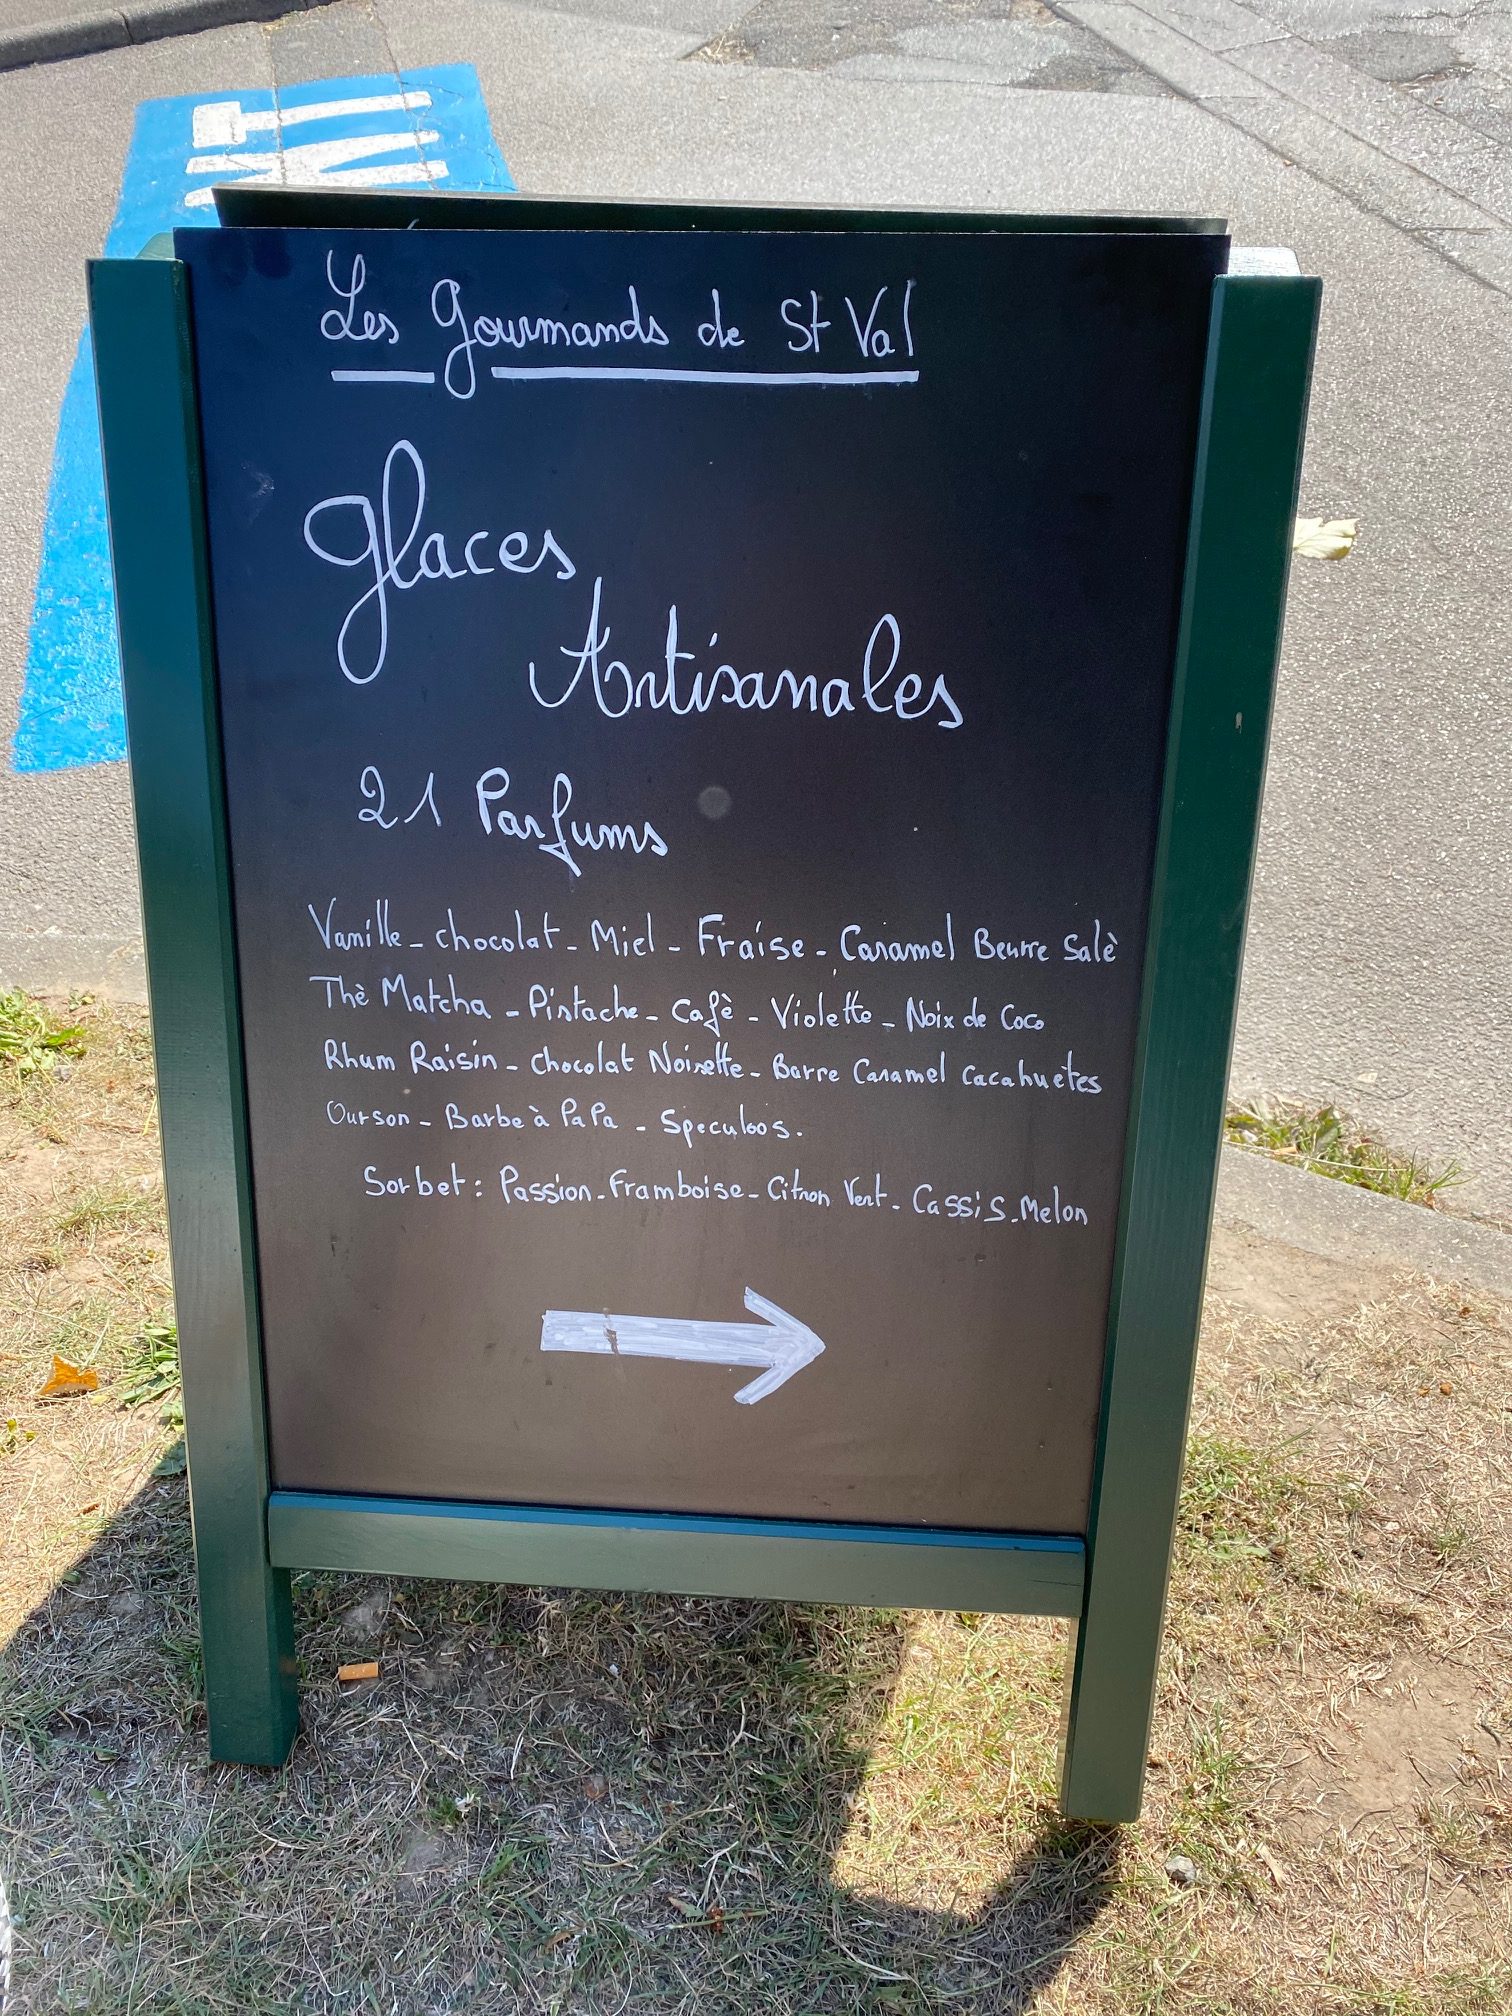 Les Gourmands de St Val
Glaces
Artisanales
21 Parfums
Vanille - chocolat - Miel - Fraise - Caramel Beurre Salè
Thè Matcha - Pistache - Cafè - Violette - Noix de Coco
Rhum Raisin - Chocolat Noisette - Barre Caramel Cacahuètes
Ourson - Barbe à PaPa - Speculoos.
Sorbet : Passion - Framboise - Citron Vert - Cassis - Melon